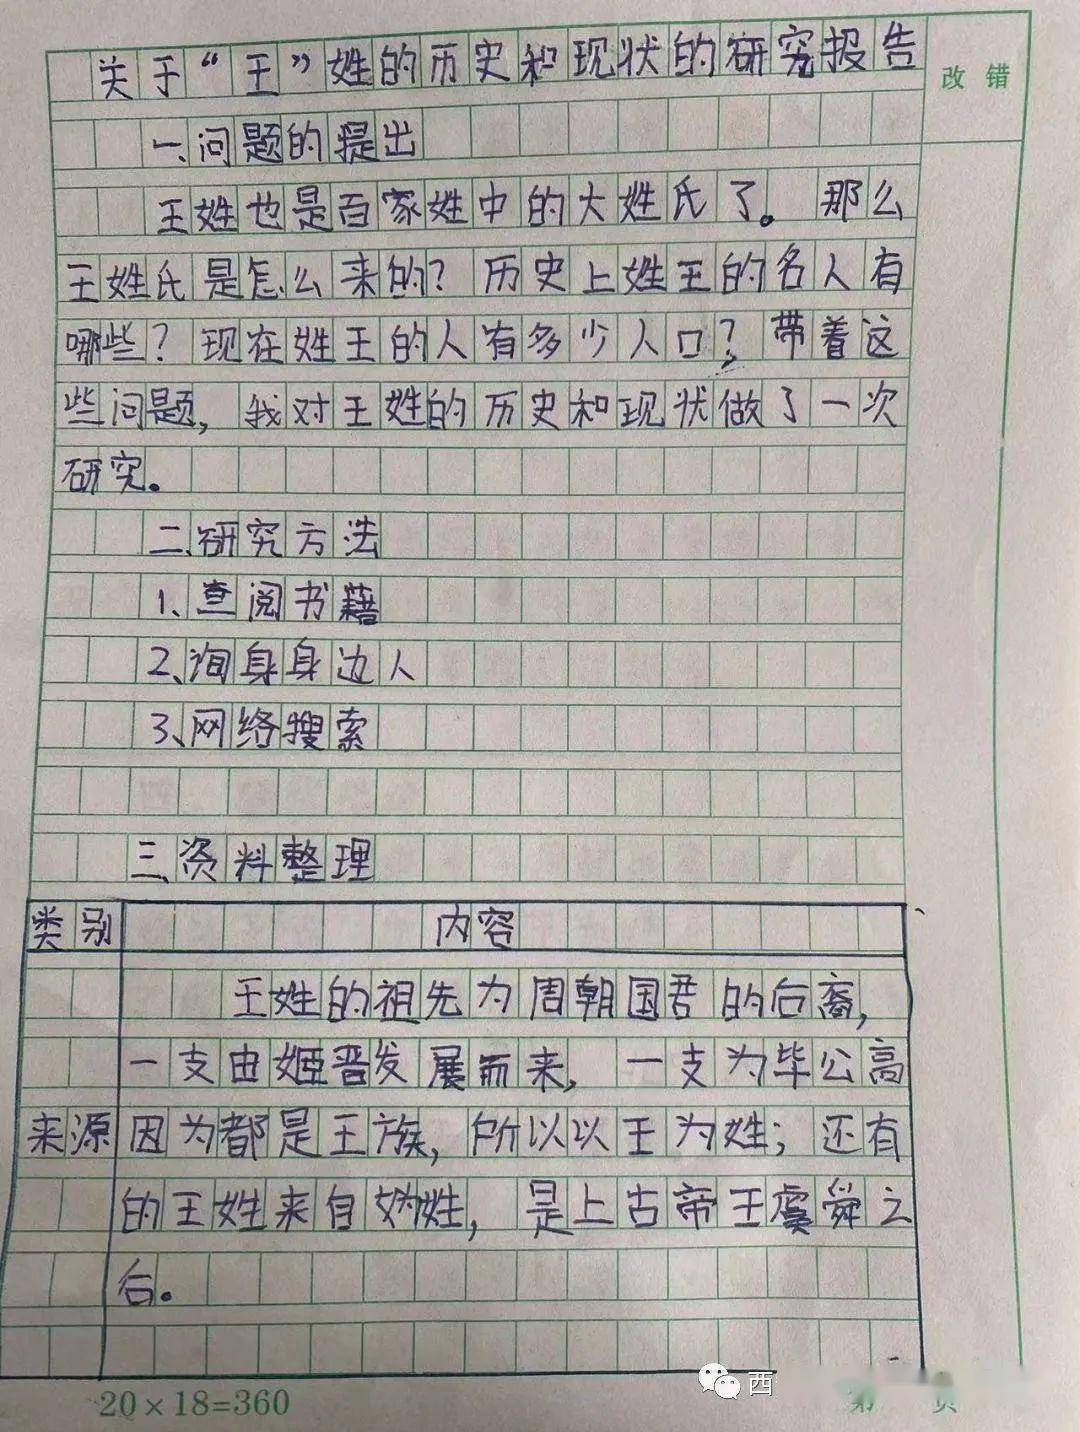 关于“王”姓的历史和现状的研究报告
改错
一、问题的提出
王姓也是百家姓中的大姓氏了。那么
王姓氏是怎么来的？历史上姓王的名人有
哪些？现在姓王的人有多少人口？带着这
些问题，我对王姓的历史和现状做了一次
研究。
二、研究方法
1、查阅书籍
2、询身身边人
3、网络搜索
三、资料整理
类别 内容
王姓的祖先为周朝国君的后裔，
一支由姬晋发展而来，一支为毕公高
来源 因为都是王族，所以以王为姓；还有
的王姓来自妫姓，是上古帝王虞舜之
后。
20×18=360
西
第 页